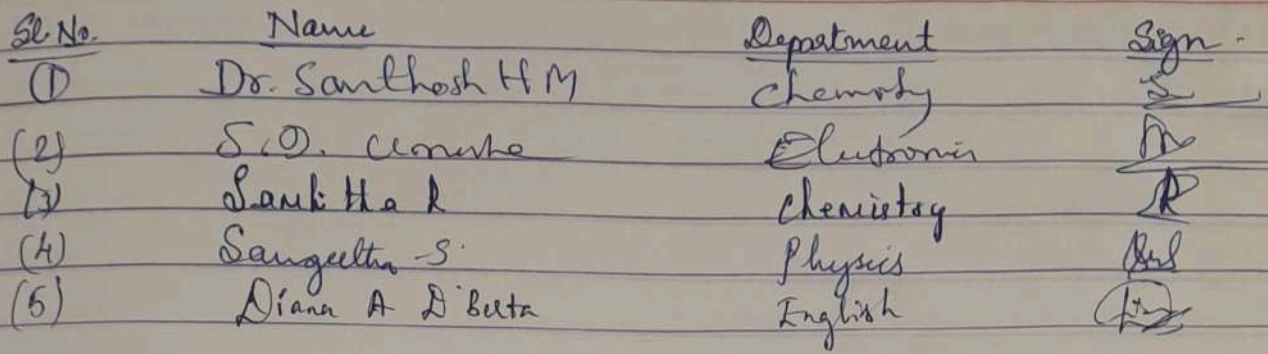 Sl. No. Name Department Sign.
(1) Dr. Santhosh H M Chemistry
(2) S.O. Electronics
(3) R Chemistry
(4) Sangeetha S. Physics
(5) Diana A D'
English